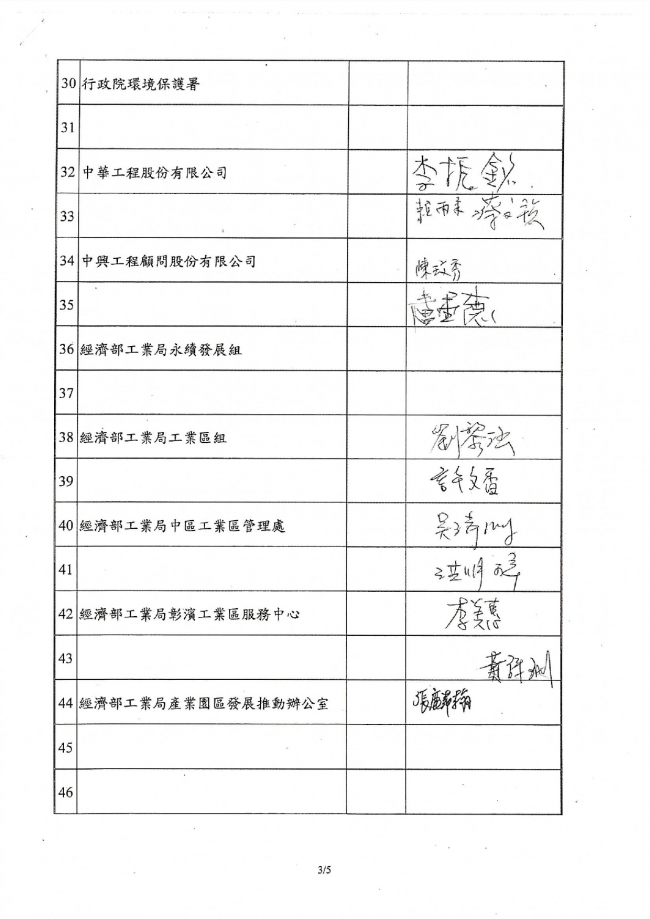 30 行政院環境保護署
31
32 中華工程股份有限公司 李振
33
34 中興工程顧問股份有限公司 陳
35
36 經濟部工業局永續發展組
37
38 經濟部工業局工業區組 劉黎
39 許文
40 經濟部工業局中區工業區管理處 吳
41 洪明
42 經濟部工業局彰濱工業區服務中心 李美
43
44 經濟部工業局產業園區發展推動辦公室 張
45
46
3/5